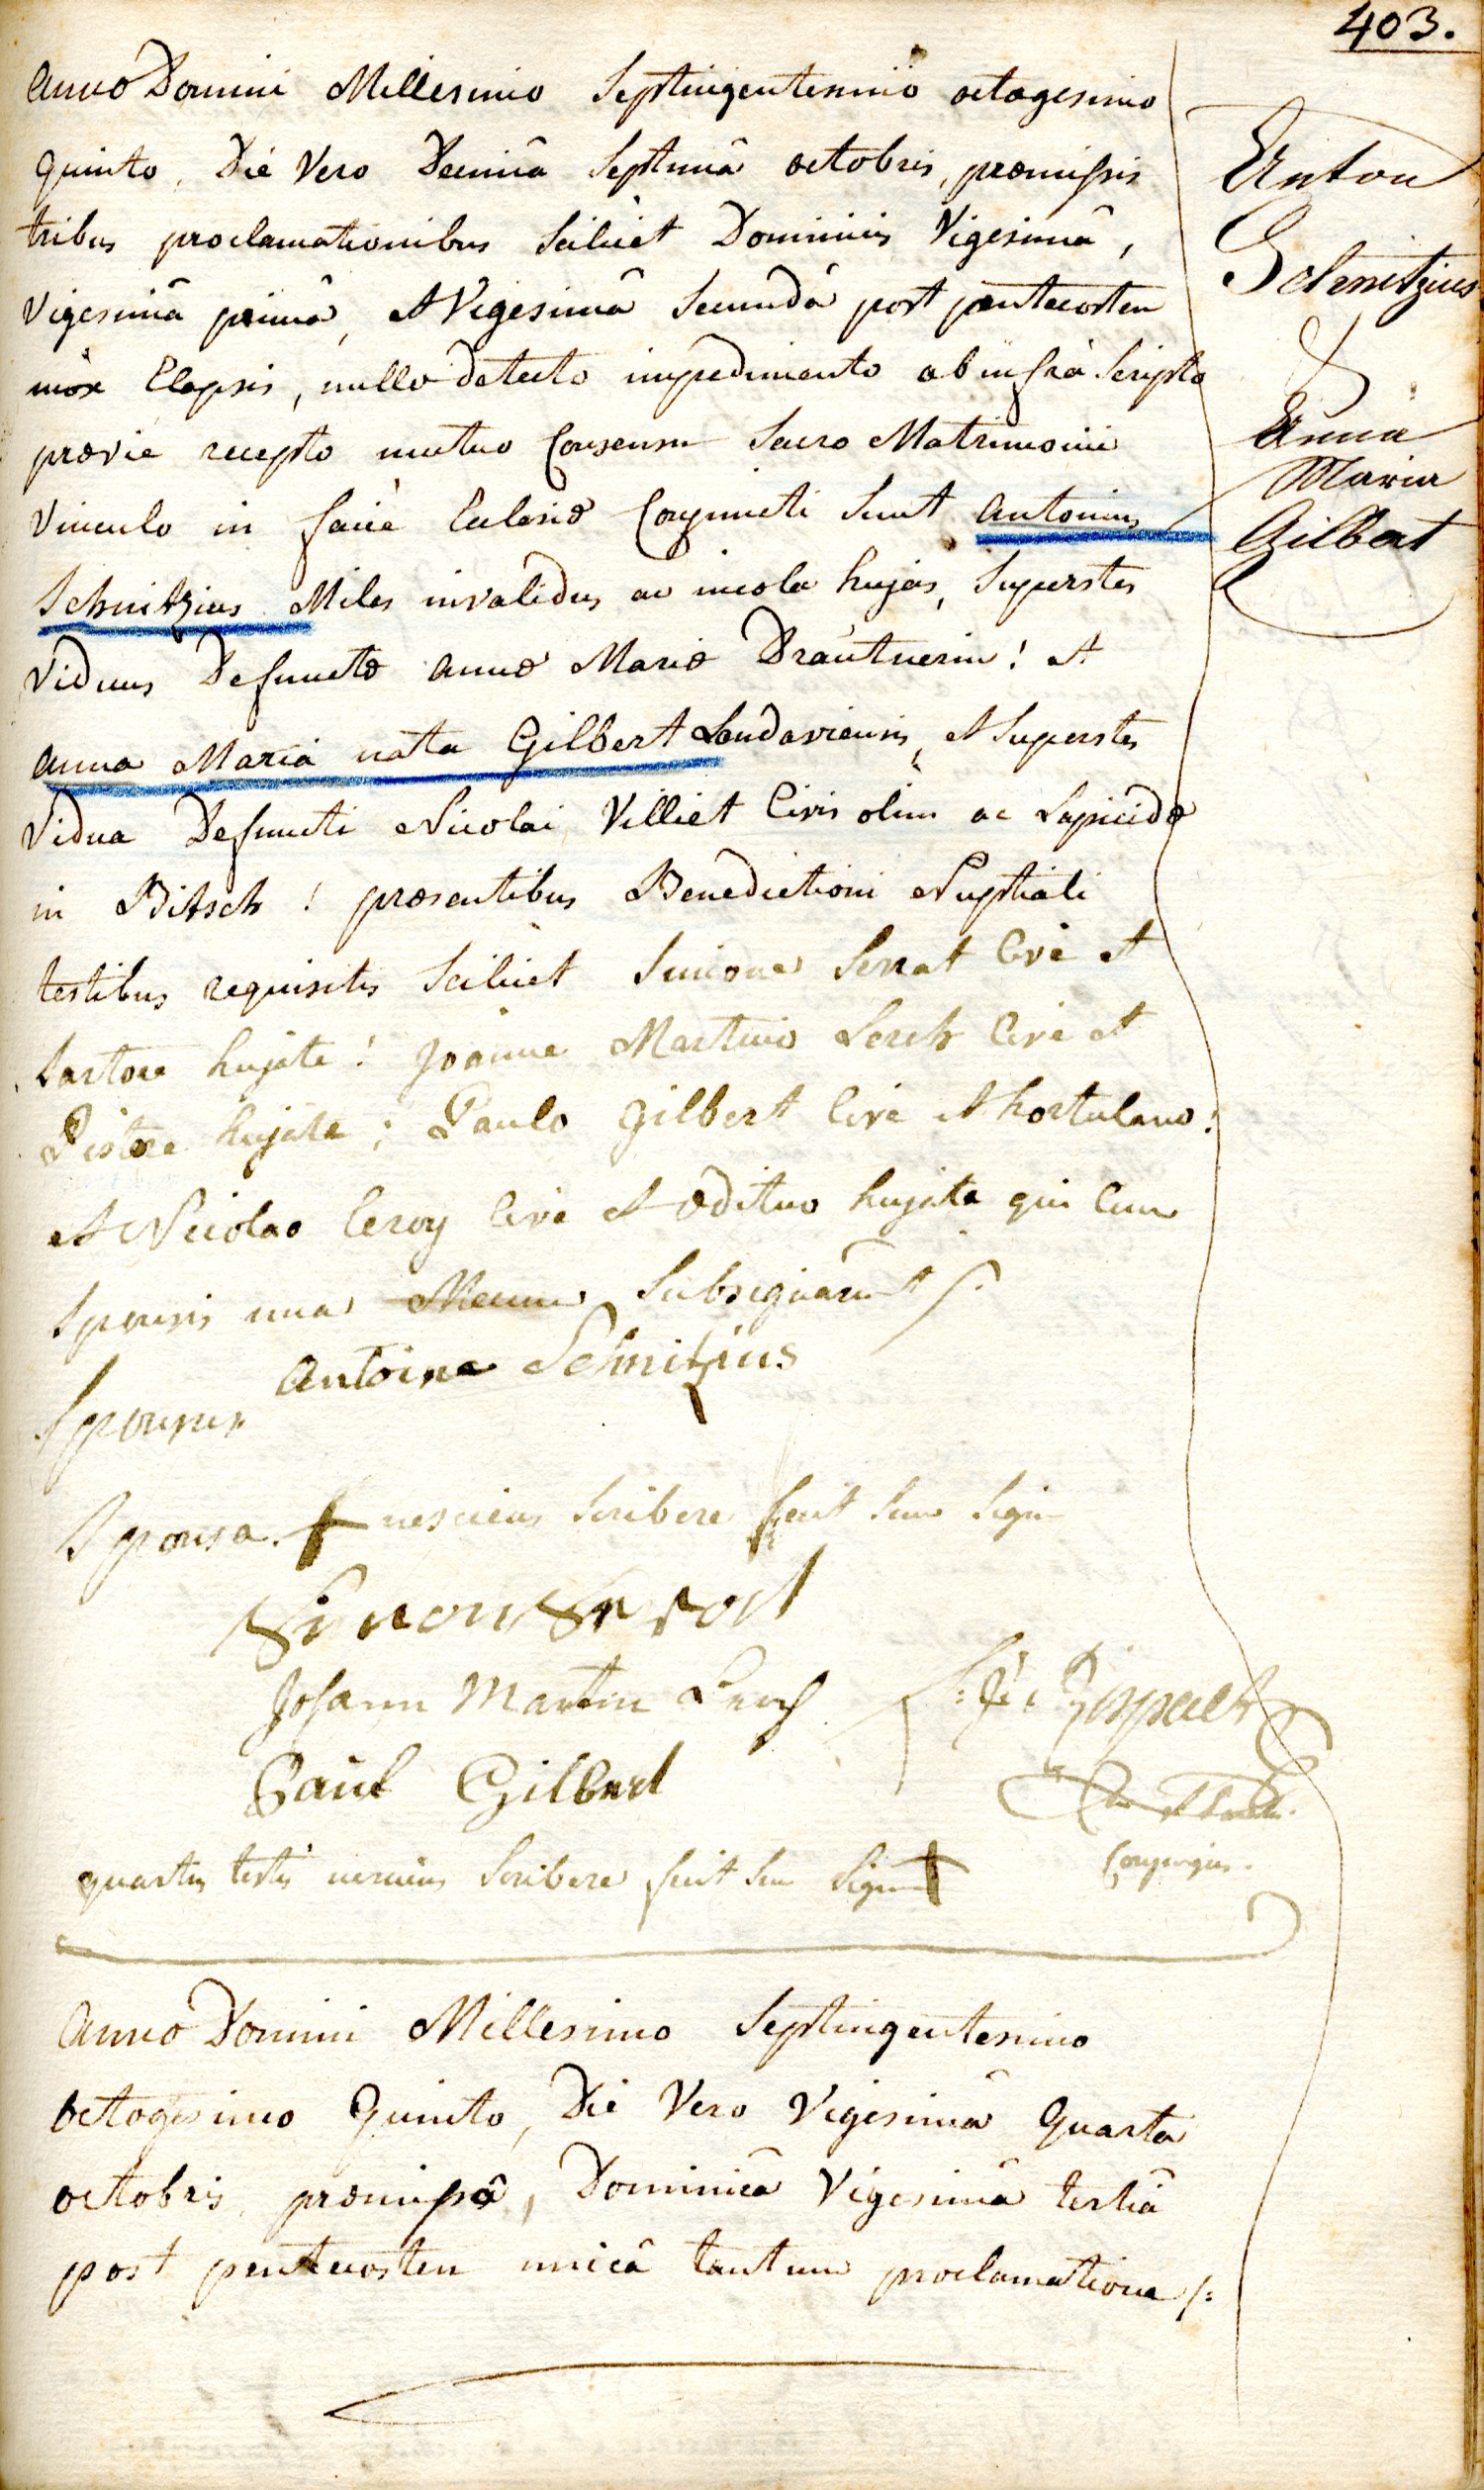 403.
Anno Domini Millesimo Septingentesimo octogesimo
quinto, Die Vero Decimâ Septimâ octobris, præmissis
tribus proclamationibus Scilicet Dominicis Vigesimâ,
Vigesimâ primâ, et Vigesimâ Secundâ post pentecosten
mox Elapsis, nullo detecto impedimento ab infrà Scripto
prævie recepto mutuo Consensu Sacro Matrimonii
Vinculo in facie Eclesiæ Conjuncti Sunt Antonius
Schnitzius Miles invalidus ac incola hujas, Superstes
Viduus Defunctæ Annæ Mariæ Dräutnerin! et
Anna Maria nata Gilbert Landaviensis, et Superstes
Vidua Defuncti Nicolai Villiet Civis olim ac Lapicidæ
in Bitsch! præsentibus Benedictioni Nuptiali
testibus requisitis Scilicet Simone Serrat Cive et
Sartore hujate! Joanne Martino Lerch Cive et
Pistore hujate; Paulo Gilbert Cive et hortulano!
et Nicolao Ceroy Cive et ædituo hujate qui Cum
Sponsis una Mecum Subsignârunt
Anton
Schnitzius
&
Anna
Maria
Gilbert
Antoine Schnitzius
Sponsus
Sponsa. + nesciens Scribere fecit Suu Sign
Simon Serrat
Johann Martin Lerch
Paul Gilbert
quartus testis nesciens Scribere fecit Suu Signu +
Conjungens.
Anno Domini Millesimo Septingentesimo
octogesimo Quinto, Die Vero Vigesimâ Quarta
octobris præmissâ, Dominicâ Vigesimâ tertiâ
post pentecosten unicâ tantum proclamatione /: